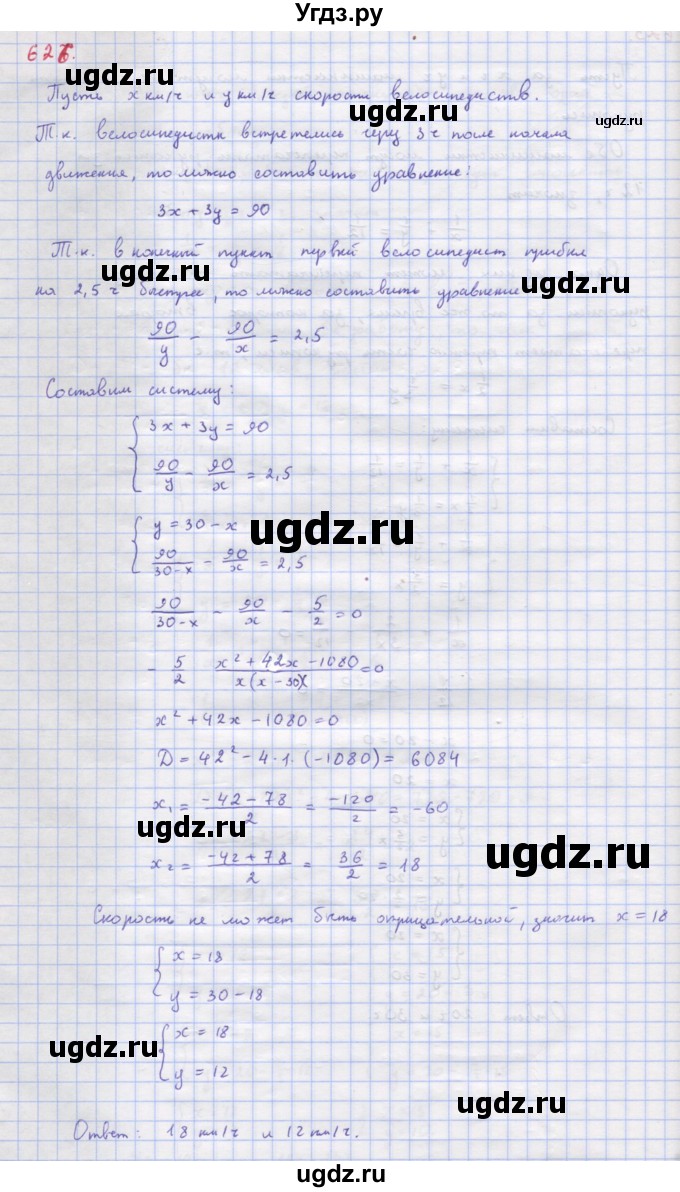 Угдз.ру
626.
ugdz.ru
Пусть x км/ч и y км/ч скорости велосипедистов.
ugdz.ru
Т.к. велосипедисты встретились через 3 ч после начала
движения, то можно составить уравнение:
3x + 3y = 90
Т.к. в конечный пункт первый велосипедист прибыл
ugdz.ru
на 2,5 ч быстрее, то можно составить уравнение
ugdz.ru
90/y - 90/x = 2,5
Составим систему:
3x + 3y = 90
90/y - 90/x = 2,5
ugdz.ru
y = 30 - x
90/30-x - 90/x = 2,5
90/30-x - 90/x - 5/2 = 0
- 5/2 x² + 42x - 1080/x(x - 30) = 0
x² + 42x - 1080 = 0
D = 42² - 4·1·(-1080) = 6084
x₁ = -42-78/2 = -120/2 = -60
ugdz.ru
x₂ = -42+78/2 = 36/2 = 18
ugdz.ru
Скорость не может быть отрицательной, значит x = 18
x = 18
y = 30 - 18
x = 18
ugdz.ru
y = 12
Ответ: 18 км/ч и 12 км/ч.
ugdz.ru